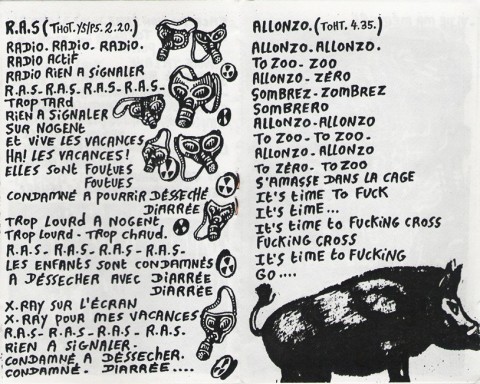 R.A.S (THOT. Y5/PS. 2.20.)
RADIO. RADIO. RADIO.
RADIO ACTIF
RADIO RIEN A SIGNALER
R.A.S- R.A.S- R.A.S- R.A.S-
TROP TARD
RIEN A SIGNALER
SUR NOGENT
ET VIVE LES VACANCES
HA! LES VACANCES!
ELLES SONT FOUTUES
FOUTUES
CONDAMNÉ A POURRIR DÉSSECHÉ
DIARRÉE
TROP LOURD A NOGENT
TROP LOURD - TROP CHAUD.
R.A.S- R.A.S- R.A.S- R.A.S-
LES ENFANTS SONT CONDAMNÉS
A DÉSSECHER AVEC DIARRÉE
DIARRÉE
X.RAY SUR L'ÉCRAN
X.RAY POUR MES VACANCES
R.A.S- R.A.S - R.A.S - R.A.S.
RIEN A SIGNALER-
CONDAMNÉ A DÉSSECHER.
CONDAMNÉ- DIARRÉE....
ALLONZO. (TOHT. 4.35.)
ALLONZO. ALLONZO.
TO ZOO- ZOO
ALLONZO- ZÉRO
SOMBREZ- ZOMBREZ
SOMBRERO
ALLONZO- ALLONZO
TO ZOO- TO ZOO-
ALLONZO- ALLONZO
TO ZÉRO- TO ZOO
S'AMASSE DANS LA CAGE
It's time TO FUCK
It's time...
It's time to FUCKING CROSS
FUCKING CROSS
It's time to FUCKING
GO....